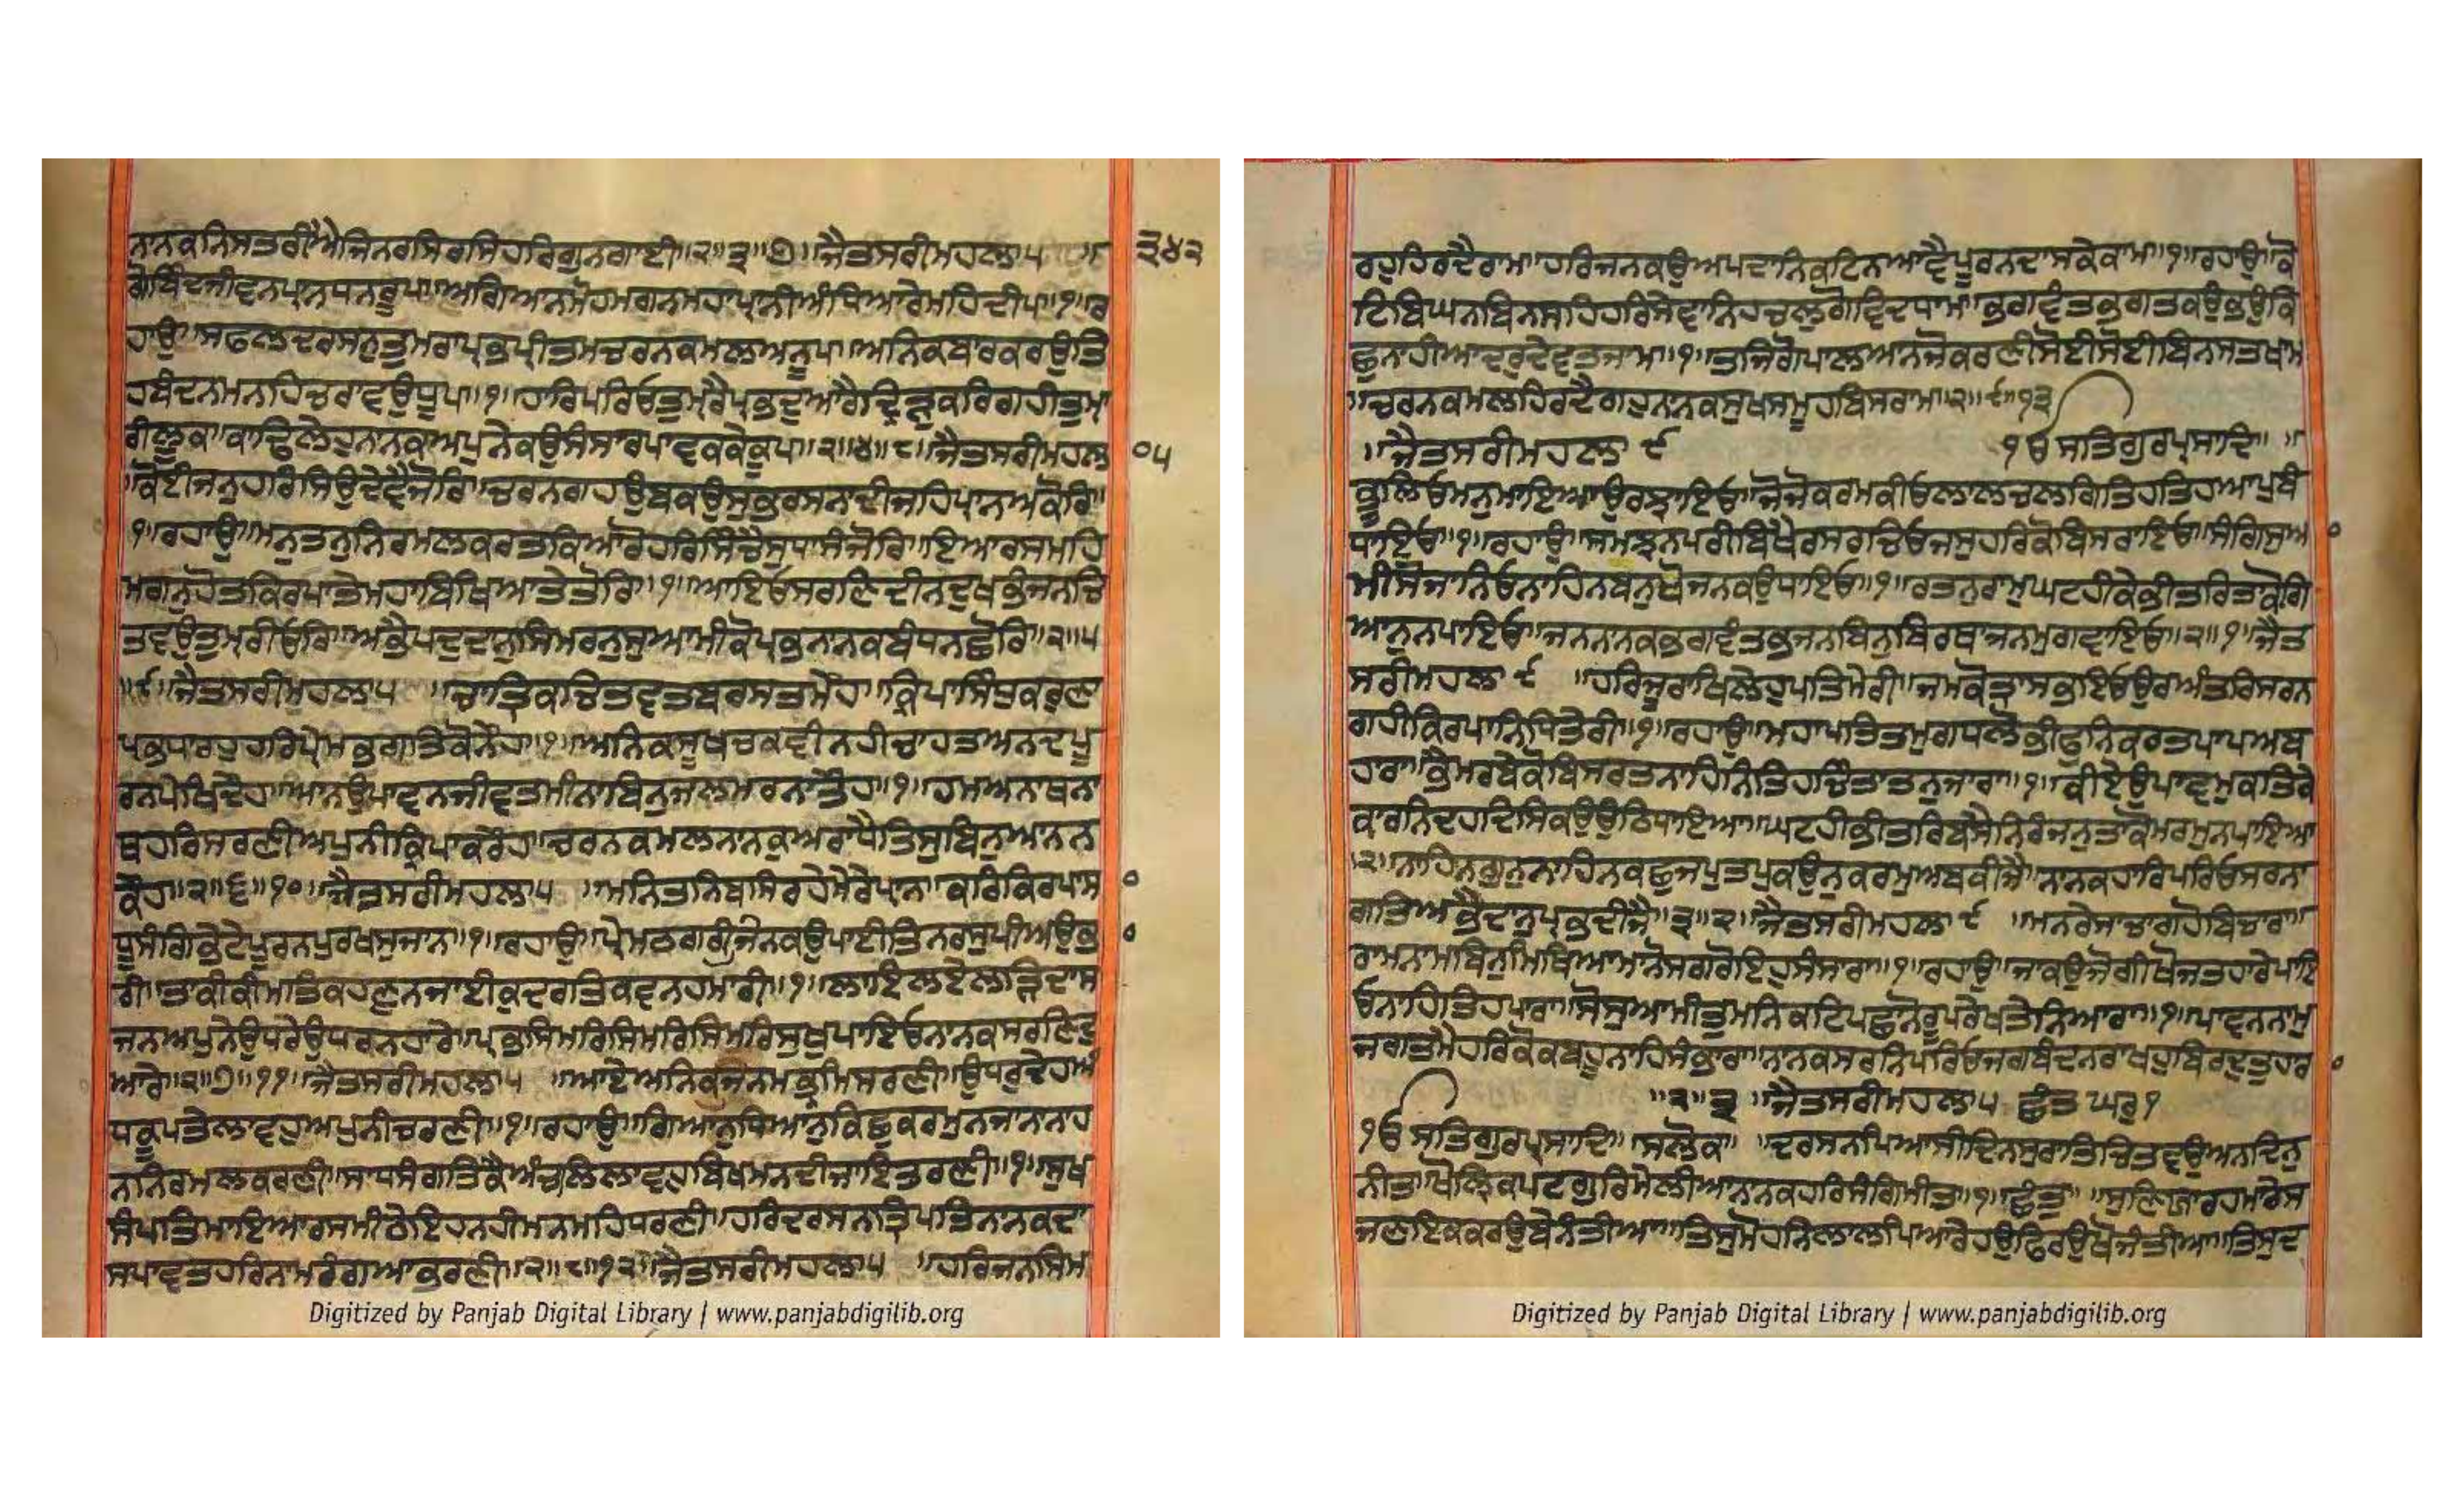 ਨਾਨਕਨਿਸਤਰੀਐਜਿਨਰਸਿਰਸਿਹਰਿਗੁਨਗਾਈ॥੨॥੩॥੭॥ਜੈਤਸਰੀਮਹਲਾ੫
੩੪੨
ਗੋਬਿੰਦਜੀਵਨਪ੍ਰਾਨਧਨਰੂਪ॥ਅਗਿਆਨਮੋਹਮਗਨਮਹਾਪ੍ਰਾਨੀਅੰਧਿਆਰੇਮਹਿਦੀਪ॥੧॥ਰ
ਹਾਉ॥ਸਫਲਦਰਸਨੁਤੁਮਰਾਪ੍ਰਭਪ੍ਰੀਤਮਚਰਨਕਮਲਆਨੂਪ॥ਅਨਿਕਬਾਰਕਰਉਤਿ
ਹਬੰਦਨਮਨਹਿਚਰਾਵਉਧੂਪ॥੧॥ਹਾਰਿਪਰਿਓਤੁਮ੍ਰੈਪ੍ਰਭਦੁਆਰੈਦ੍ਰਿੜੁਕਰਿਗਹੀਤੁਮ੍ਹਾ
ਰੀਲੂਕ॥ਕਾਢਿਲੇਹੁਨਾਨਕਅਪੁਨੇਕਉਸੰਸਾਰਪਾਵਕਕੇਕੂਪ॥੨॥੪॥੮॥ਜੈਤਸਰੀਮਹਲਾ
੦੫
ਕੋਈਜਨੁਹਰਿਸਿਉਦੇਵੈਜੋਰਿ॥ਚਰਨਗਹਉਬਕਉਸੁਭਰਸਨਾਦੀਜਹਿਪ੍ਰਾਨਅਕੋਰਿ॥
੧॥ਰਹਾਉ॥ਮਨੁਤਨੁਨਿਰਮਲਕਰਤਕਿਆਰੋਹਰਿਸਿੰਚੈਸੁਧਾਸੰਜੋਰਿ॥ਇਆਰਸਮਹਿ
ਮਗਨੁਹੋਤਕਿਰਪਾਤੇਮਹਾਬਿਖਿਆਤੇਤੋਰਿ॥੧॥ਆਇਓਸਰਣਿਦੀਨਦੁਖਭੰਜਨਚਿ
ਤਵਉਤੁਮ੍ਹਰੀਓਰਿ॥ਅਭੈਪਦੁਦਾਨੁਸਿਮਰਨੁਸੁਆਮੀਕੋਪ੍ਰਭਨਾਨਕਬੰਧਨਛੋਰਿ॥੨॥੫
॥੯॥ਜੈਤਸਰੀਮਹਲਾ੫ ॥ਚਾਤ੍ਰਿਕਚਿਤਵਤਬਰਸਤਮੇਂਹ॥ਕ੍ਰਿਪਾਸਿੰਧੁਕਰੁਣਾ
ਪ੍ਰਭਧਾਰਹੁਹਰਿਪ੍ਰੇਮਭਗਤਿਕੋਨੇਂਹ॥੧॥ਅਨਿਕਸੂਖਚਕਵੀਨਹੀਚਾਹਤਅਨਦਪੂ
ਰਨਪੇਖਿਦੇਂਹ॥ਆਨਉਪਾਵਨਜੀਵਤਮੀਨਾਬਿਨੁਜਲਮਰਨਾਤੇਂਹ॥੧॥ਹਮਅਨਾਥਨਾ
ਥਹਰਿਸਰਣੀਅਪੁਨੀਕ੍ਰਿਪਾਕਰੇਂਹ॥ਚਰਨਕਮਲਨਾਨਕੁਅਰਾਧੈਤਿਸੁਬਿਨੁਆਨਨ
ਕੇਂਹ॥੨॥੬॥੧੦॥ਜੈਤਸਰੀਮਹਲਾ੫ ॥ਮਨਿਤਨਿਬਸਿਰਹੇਮੇਰੇਪ੍ਰਾਨ॥ਕਰਿਕਿਰਪਾਸਾ
ਧੂਸੰਗਿਭੇਟੇਪੂਰਨਪੁਰਖਸੁਜਾਨ॥੧॥ਰਹਾਉ॥ਪ੍ਰੇਮਠਗਉਰੀਜਿਨਕਉਪਾਈਤਿਨਰਸੁਪੀਅਉਭਾ
ਰੀ॥ਤਾਕੀਕੀਮਤਿਕਹਣੁਨਜਾਈਕੁਦਰਤਿਕਵਨਹਮਾਰੀ॥੧॥ਲਾਇਲਏਲੜਿਦਾਸ
ਜਨਅਪੁਨੇਉਧਰੇਉਧਰਨਹਾਰੇ॥ਪ੍ਰਭੁਸਿਮਰਿਸਿਮਰਿਸਿਮਰਿਸੁਖੁਪਾਇਓਨਾਨਕਸਰਣਿਦੁ
ਆਰੇ॥੨॥੭॥੧੧॥ਜੈਤਸਰੀਮਹਲਾ੫ ॥ਆਏਅਨਿਕਜਨਮਭ੍ਰਮਿਸਰਣੀ॥ਉਧਰੁਦੇਹਅੰ
ਧਕੂਪਤੇਲਾਵਹੁਅਪੁਨੀਚਰਣੀ॥੧॥ਰਹਾਉ॥ਗਿਆਨੁਧਿਆਨੁਕਿਛੁਕਰਮੁਨਜਾਨਾਨਾਹਿ
ਨਨਿਰਮਲਕਰਣੀ॥ਸਾਧਸੰਗਤਿਕੈਅੰਚਲਿਲਾਵਹੁਬਿਖਮਨਦੀਜਾਇਤਰਣੀ॥੧॥ਸੁਖ
ਸੰਪਤਿਮਾਇਆਰਸਮੀਠੇਇਹਨਹੀਮਨਮਹਿਧਰਣੀ॥ਹਰਿਦਰਸਨਤ੍ਰਿਪਤਿਨਾਨਕਦਾ
ਸਪਾਵਤਹਰਿਨਾਮਰੰਗਆਭਰਣੀ॥੨॥੮॥੧੨॥ਜੈਤਸਰੀਮਹਲਾ੫ ॥ਹਰਿਜਨਸਿਮ
Digitized by Panjab Digital Library | www.panjabdigilib.org
ਰਹੁਹਿਰਦੈਰਾਮ॥ਹਰਿਜਨਕਉਅਪਦਾਨਿਕਟਿਨਆਵੈਪੂਰਨਦਾਸਕੇਕਾਮ॥੧॥ਰਹਾਉ॥ਕੋ
ਟਿਬਿਘਨਬਿਨਸਹਿਹਰਿਸੇਵਾਨਿਹਚਲੁਗੋਵਿਦਧਾਮ॥ਭਗਵੰਤਭਗਤਕਉਭਉਕਿ
ਛੁਨਾਹੀਆਦਰੁਦੇਵਤਜਾਮ॥੧॥ਤਜਿਗੋਪਾਲਆਨਜੋਕਰਣੀਸੋਈਸੋਈਬਿਨਸਤਖਾਮ
॥ਚਰਨਕਮਲਹਿਰਦੈਗਹੁਨਾਨਕਸੁਖਸਮੂਹਬਿਸਰਾਮ॥੨॥੯॥੧੩
॥ਜੈਤਸਰੀਮਹਲਾ ੯ ੴ ਸਤਿਗੁਰਪ੍ਰਸਾਦਿ॥ ॥
ਭੂਲਿਓਮਨੁਮਾਇਆਉਰਝਾਇਓ॥ਜੋਜੋਕਰਮਕੀਓਲਾਲਚਲਗਿਤਿਹਤਿਹਆਪੁਬੰ
ਧਾਇਓ॥੧॥ਰਹਾਉ॥ਸਮਝਨਪਰੀਬਿਖੈਰਸਰਚਿਓਜਸੁਹਰਿਕੋਬਿਸਰਾਇਓ॥ਸੰਗਿਸੁਆ
ਮੀਸੋਜਾਨਿਓਨਾਹਿਨਬਨੁਖੋਜਨਕਉਧਾਇਓ॥੧॥ਰਤਨੁਰਾਮੁਘਟਹੀਕੇਭੀਤਰਿਤਾਕੋਗਿ
ਆਨੁਨਪਾਇਓ॥ਜਨਨਾਨਕਭਗਵੰਤਭਜਨਬਿਨੁਬਿਰਥਾਜਨਮੁਗਵਾਇਓ॥੨॥੧॥ਜੈਤ
ਸਰੀਮਹਲਾ ੯ ॥ਹਰਿਜੂਰਾਖਿਲੇਹੁਪਤਿਮੇਰੀ॥ਜਮਕੋਤ੍ਰਾਸਭਇਓਉਰਅੰਤਰਿਸਰਨ
ਗਹੀਕਿਰਪਾਨਿਧਿਤੇਰੀ॥੧॥ਰਹਾਉ॥ਮਹਾਪਤਿਤਮੁਗਧਲੋਭੀਫੁਨਿਕਰਤਪਾਪਅਬ
ਹਾਰਾ॥ਭੈਮਰਬੇਕੋਬਿਸਰਤਨਾਹਿਨਿਤਿਹਚਿੰਤਾਤਨੁਜਾਰਾ॥੧॥ਕੀਏਉਪਾਵਮੁਕਤਿਕੇ
ਕਾਰਨਿਦਹਦਿਸਿਕਉਉਠਿਧਾਇਆ॥ਘਟਹੀਭੀਤਰਿਬਸੈਨਿਰੰਜਨੁਤਾਕੋਮਰਮੁਨਪਾਇਆ
॥੨॥ਨਾਹਿਨਗੁਨੁਨਾਹਿਨਕਛੁਜਪੁਤਪੁਕਉਨੁਕਰਮੁਅਬਕੀਜੈ॥ਨਾਨਕਹਾਰਿਪਰਿਓਸਰਨਾ
ਗਤਿਅਭੈਦਾਨੁਪ੍ਰਭਦੀਜੈ॥੩॥੨॥ਜੈਤਸਰੀਮਹਲਾ ੯ ॥ਮਨਰੇਸਾਚਾਗਹੋਬਿਚਾਰਾ॥
ਰਾਮਨਾਮਬਿਨੁਮਿਥਿਆਮਾਨੋਸਗਰੋਇਹੁਸੰਸਾਰਾ॥੧॥ਰਹਾਉ॥ਜਾਕਉਜੋਗੀਖੋਜਤਹਾਰੇਪਾਇ
ਓਨਾਹਿਤਿਹਪਾਰਾ॥ਸੋਸੁਆਮੀਤੁਮਨਿਕਟਿਪਛਾਨੋਰੂਪਰੇਖਤੇਨਿਆਰਾ॥੧॥ਪਾਵਨਨਾਮੁ
ਜਗਤਮੈਹਰਿਕੋਕਬਹੂਨਾਹਿਸੰਭਾਰਾ॥ਨਾਨਕਸਰਨਿਪਰਿਓਜਗਬੰਦਨਰਾਖਹੁਬਿਰਦੁਤੁਹਾਰਾ
॥੨॥੩॥ਜੈਤਸਰੀਮਹਲਾ੫ ਛੰਤ ਘਰੁ੧
ੴ ਸਤਿਗੁਰਪ੍ਰਸਾਦਿ॥ਸਲੋਕ॥ ॥ਦਰਸਨਪਿਆਸੀਦਿਨਸੁਰਾਤਿਚਿਤਵਉਅਨਦਿਨੁ
ਨੀਤ॥ਖੋਲ੍ਹਿਕਪਟਗੁਰਿਮੇਲੀਆਨਾਨਕਹਰਿਸੰਗਿਮੀਤ॥੧॥ਛੰਤ॥ ॥ਸੁਣਿਯਾਰਹਮਾਰੇਸ
ਜਣਇਕਕਰਉਬੇਨੰਤੀਆ॥ਤਿਸੁਮੋਹਨਿਲਾਲਪਿਆਰੇਹਉਫਿਰਉਖੋਜੰਤੀਆ॥ਤਿਸੁਦ
Digitized by Panjab Digital Library | www.panjabdigilib.org